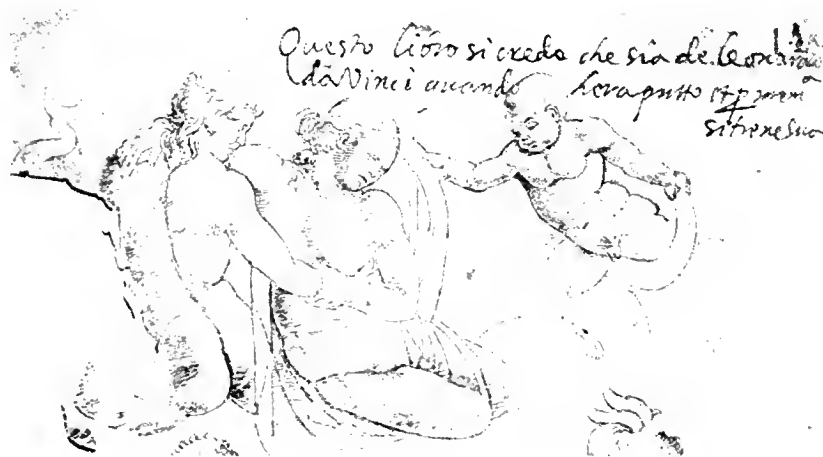 Questo libro si crede che sia de Leonardo
da Vinci quando hera putto et p
si tiene suo